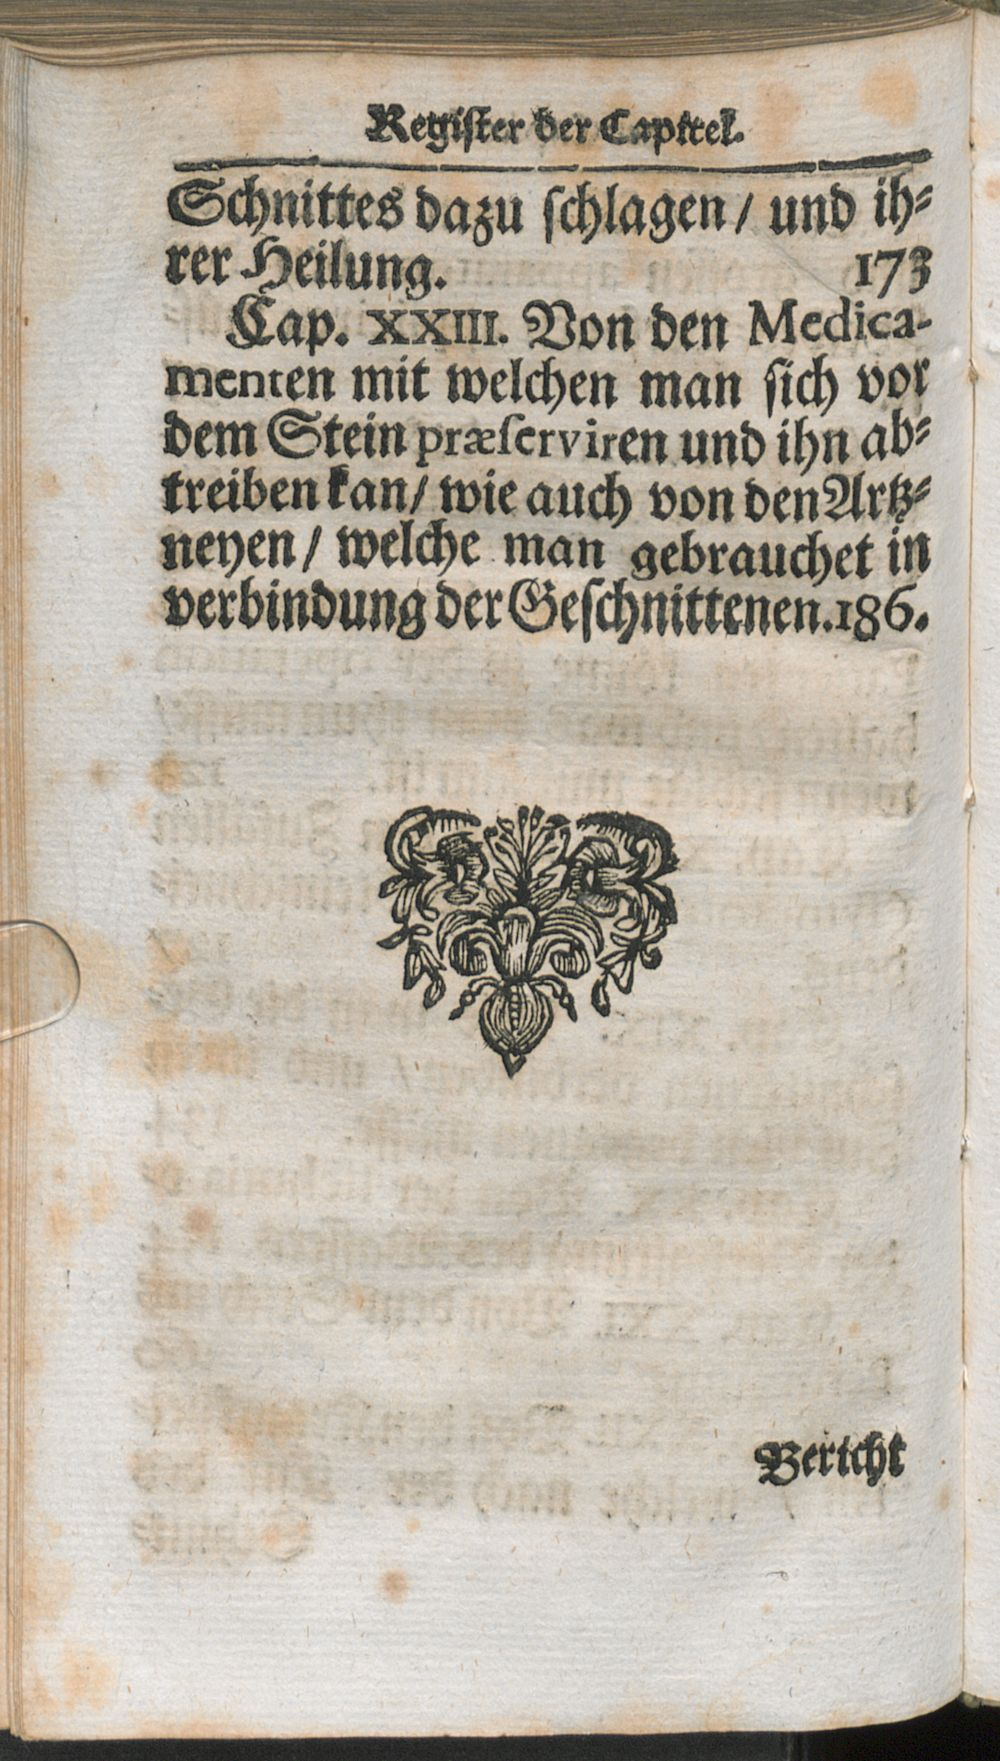 Register der Capitel.
Schnittes dazu ſchlagen / und ih⸗
rer Heilung. 173
Cap. XXIII. Von den Medica-
menten mit welchen man ſich vor
dem Stein præſerviren und ihn ab⸗
treiben kan / wie auch von den Artz⸗
neyen / welche man gebrauchet in
verbindung der Geſchnittenen. 186.
Bericht